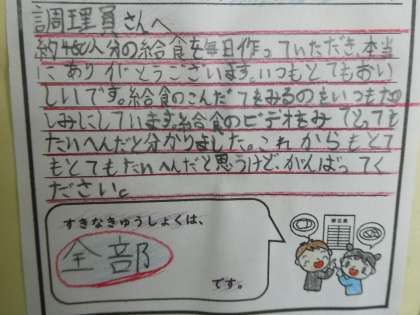 調理員さんへ
約480人分の給食を毎日作っていただき、本当
にありがとうございます。いつもとてもおい
しいです。給食のこんだてをみるのをいつも楽
しみにしています。給食のビデオをみてとっても
たいへんだと分かりました。これからもとて
もとてもたいへんだと思うけど、がんばってく
ださい。
すきなきゅうしょくは、
全部
です。